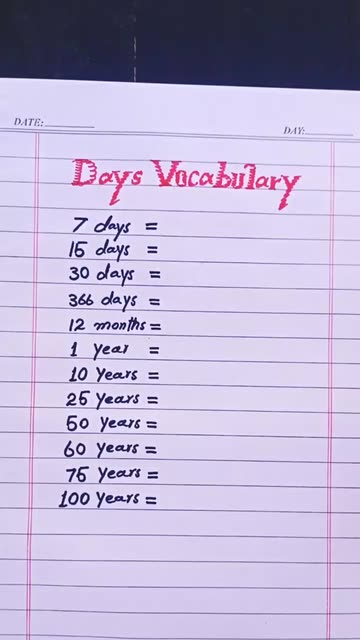 DATE:
DAY:
Days Vocabulary
7 days =
15 days =
30 days =
366 days =
12 months =
1 Year =
10 Years =
25 Years =
50 Years =
60 Years =
75 Years =
100 Years =